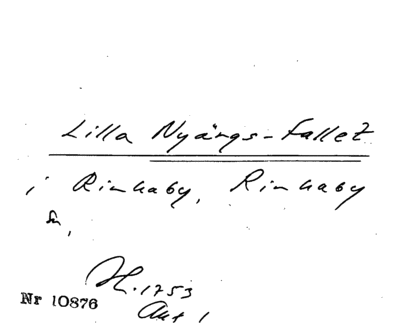 Lilla Nyängs-Fallet
i Rinkaby, Rinkaby
sn,
H. 1753
Nr 10876
Akt 1